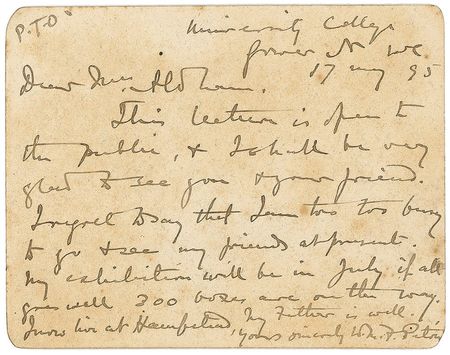 P.T.O
University College
Gower St WC
17 May 95
Dear Mrs. Aldham.
This lecture is open to
the public, & I shall be very
glad to see you & your friend.
I regret to say that I am too too busy
to go & see my friends at present.
My exhibition will be in July if all
goes well 300 boxes are on the way.
I now live at Hampstead, My Father is well.
Yours sincerely W. M. F. Petrie